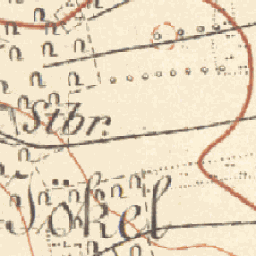 Stbr.
Jokel